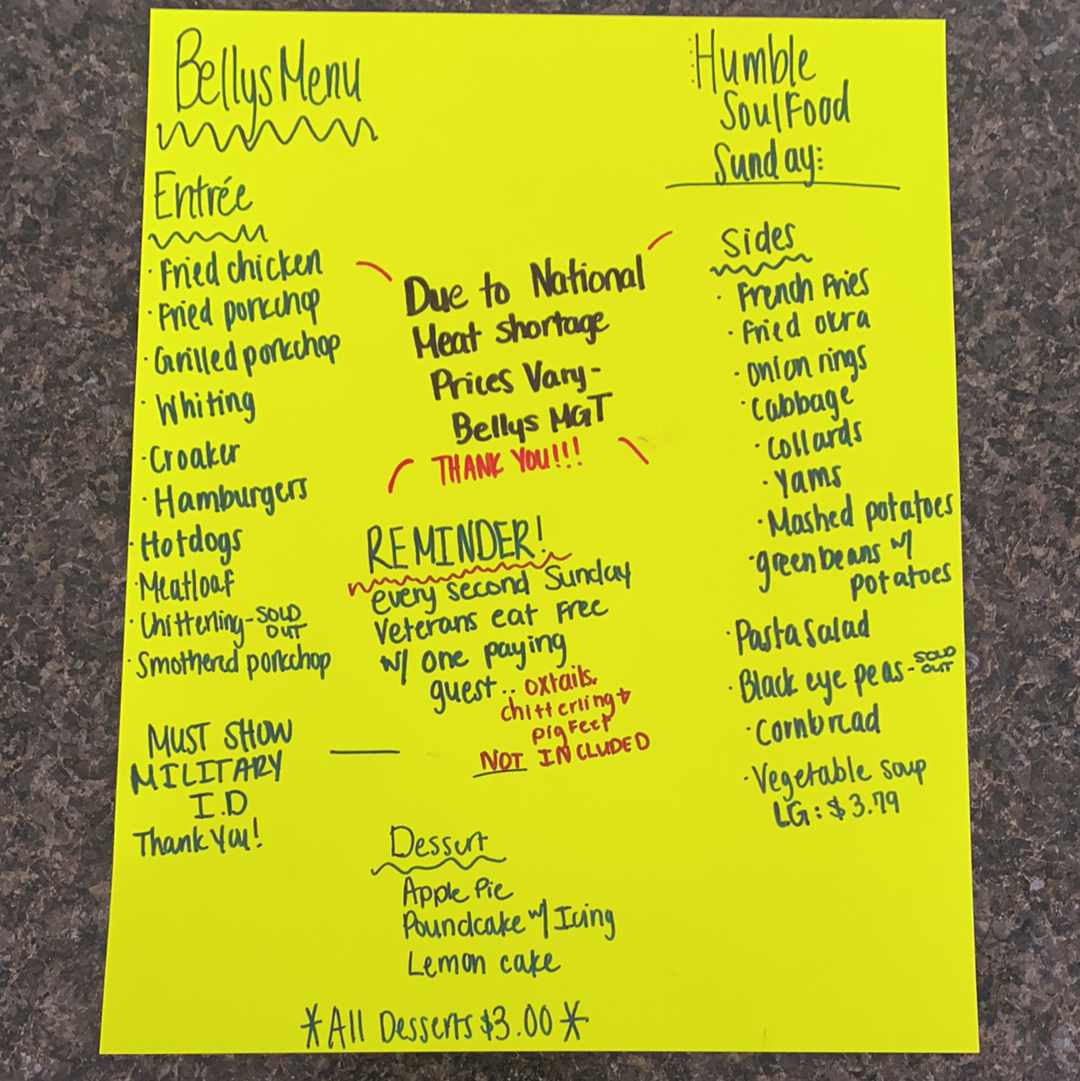 Bellys Menu
Humble
Soul Food
Sunday:
Entrée
· Fried chicken
· Fried porkchop
· Grilled porkchop
· Whiting
· Croaker
· Hamburgers
· Hotdogs
· Meatloaf
· Chitterling - SOLD
OUT
· Smothered porkchop
MUST SHOW
MILITARY
I.D
Thank You!
Due to National
Meat shortage
Prices Vary -
Bellys MGT
THANK YOU!!!
REMINDER!
every second Sunday
Veterans eat Free
w/ one paying
guest .. oxtails,
chitterling +
pig Feet
NOT INCLUDED
Sides
· French Fries
· Fried okra
· onion rings
· Cabbage
· Collards
· Yams
· Mashed potatoes
· green beans w/
potatoes
· Pasta Salad
· Black eye peas - SOLD
OUT
· Cornbread
· Vegetable soup
LG: $3.79
Dessert
Apple Pie
Poundcake w/ Icing
Lemon cake
*All Desserts $3.00*